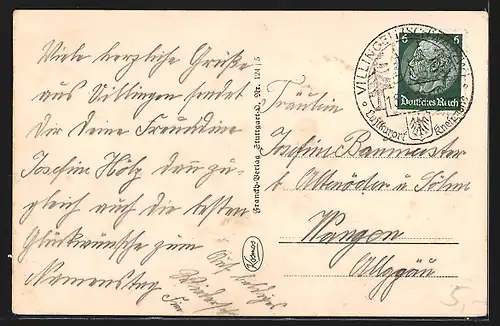 Viele herzliche Grüße
aus Villingen sendet
Dir Deine Freundin
Josefine Hölz
zugleich auch die besten
Glückwünsche zum
Namenstag
Auf baldiges
Wiederseh
Franckh-Verlag, Stuttgart-O. Nr. 124/5
Kosmos
VILLINGEN
6 6
Deutsches Reich
Luftkurort
Kneippkurort
Fräulein
Josefine Baumeister
b. Altenöder u. Söhne
Wangen
Allgäu
5,-